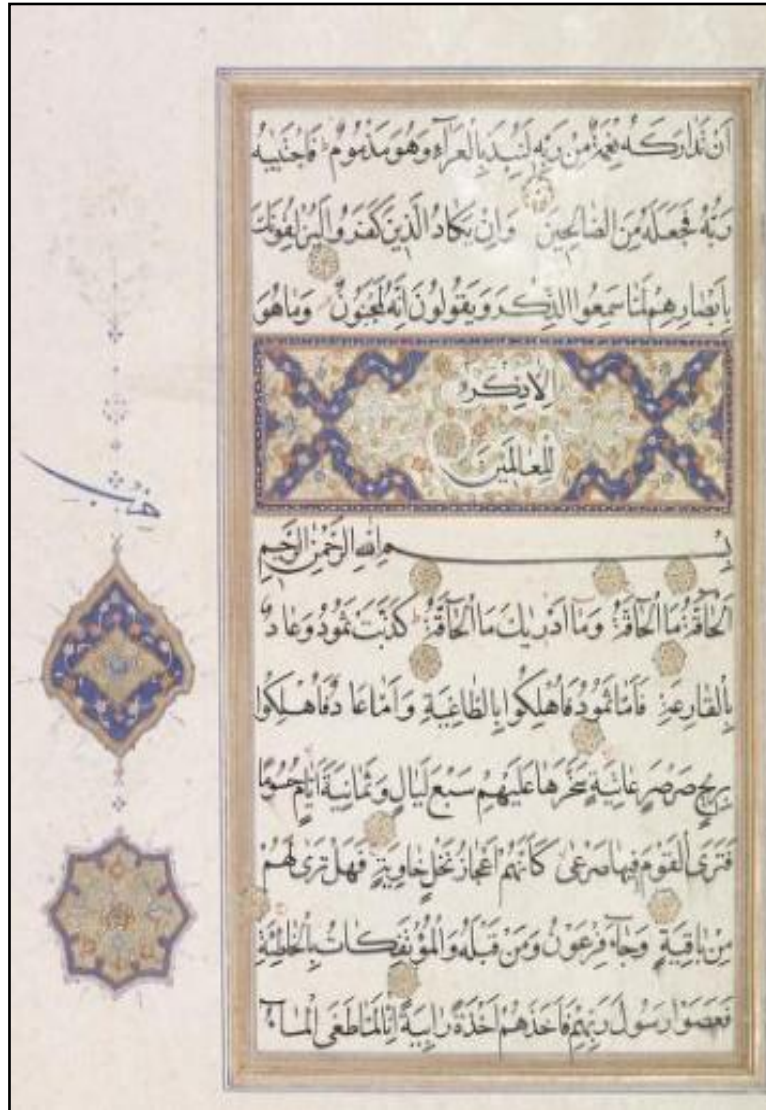 اَنْ تَدَارَكَهُ نِعْمَةٌ مِنْ رَبِّهِ لَنُبِذَ بِالْعَرَاءِ وَهُوَ مَذْمُومٌ فَاجْتَبٰيهُ
رَبُّهُ فَجَعَلَهُ مِنَ الصَّالِحِينَ وَاِنْ يَكَادُ الَّذِينَ كَفَرُوا لَيُزْلِقُونَكَ
بِاَبْصَارِهِمْ لَمَّا سَمِعُوا الذِّكْرَ وَيَقُولُونَ اِنَّهُ لَمَجْنُونٌ وَمَا هُوَ
اِلَّا ذِكْرٌ
لِلْعَالَمِينَ
بِسْمِ اللّٰهِ الرَّحْمٰنِ الرَّحِيمِ
اَلْحَاقَّةُ مَا الْحَاقَّةُ وَمَا اَدْرٰيكَ مَا الْحَاقَّةُ كَذَّبَتْ ثَمُودُ وَعَادٌ
بِالْقَارِعَةِ فَاَمَّا ثَمُودُ فَاُهْلِكُوا بِالطَّاغِيَةِ وَاَمَّا عَادٌ فَاُهْلِكُوا
بِرِيحٍ صَرْصَرٍ عَاتِيَةٍ سَخَّرَهَا عَلَيْهِمْ سَبْعَ لَيَالٍ وَثَمَانِيَةَ اَيَّامٍ حُسُومًا
فَتَرَى الْقَوْمَ فِيهَا صَرْعٰى كَاَنَّهُمْ اَعْجَازُ نَخْلٍ خَاوِيَةٍ فَهَلْ تَرٰى لَهُمْ
مِنْ بَاقِيَةٍ وَجَاءَ فِرْعَوْنُ وَمَنْ قَبْلَهُ وَالْمُؤْتَفِكَاتُ بِالْخَاطِئَةِ
فَعَصَوْا رَسُولَ رَبِّهِمْ فَاَخَذَهُمْ اَخْذَةً رَابِيَةً اِنَّا لَمَّا طَغَى الْمَاءُ